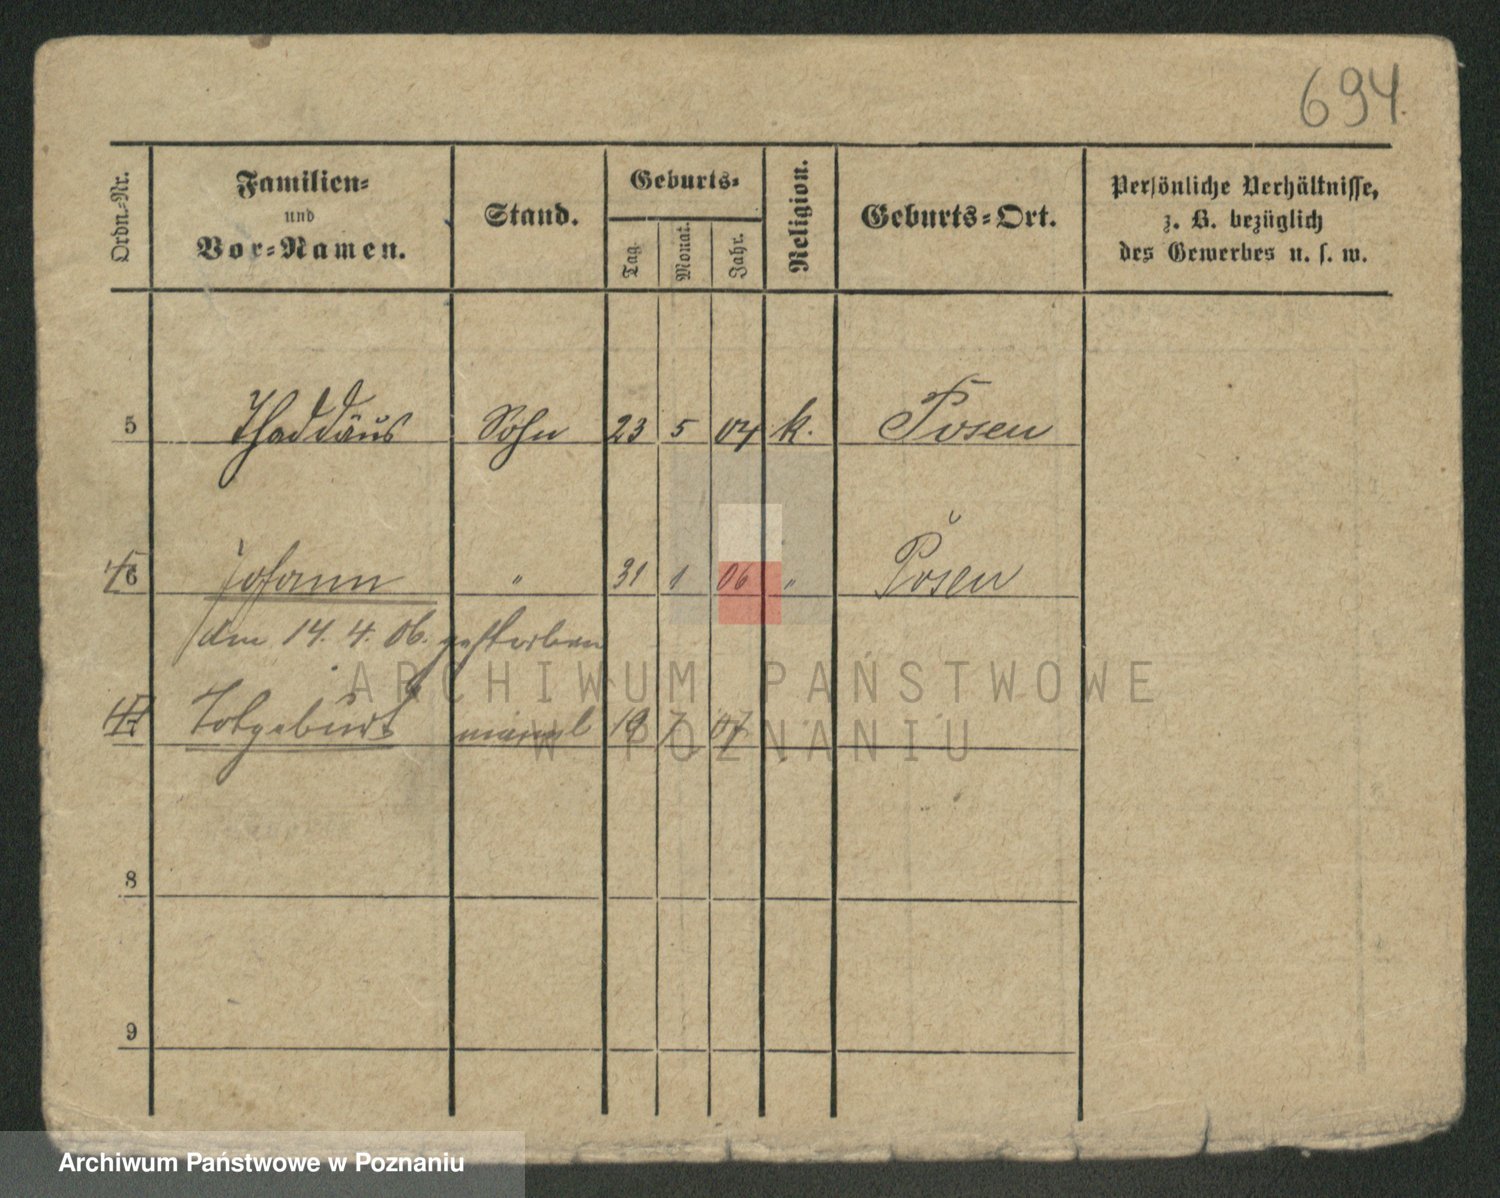 694.
Ordn.-Nr.
Familien-
und
Vor-Namen.
Stand.
Geburts-
Tag.
Monat.
Jahr.
Religion.
Geburts-Ort.
Persönliche Verhältnisse,
z. B. bezüglich
des Gewerbes u. s. w.
5 Thaddäus Sohn 23 5 04 k. Posen
6 Johann " 31 1 06 " Posen
den 14. 4. 06. gestorben
7 Totgeburt männl 19 7 07
8
9
ARCHIWUM PAŃSTWOWE
W POZNANIU
Archiwum Państwowe w Poznaniu